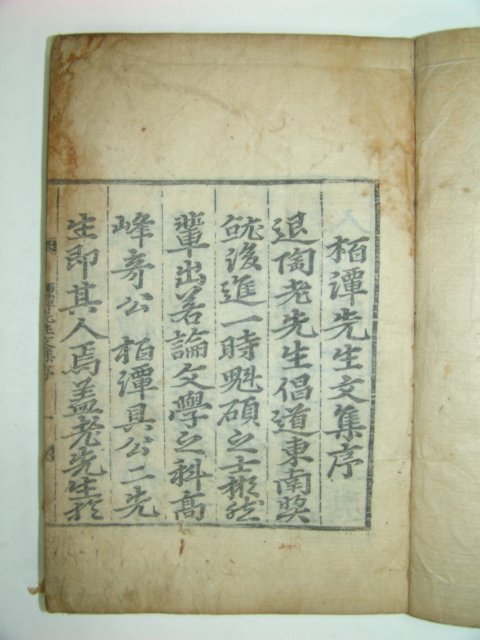 栢潭先生文集序
退陶老先生倡道東南奬
後進一時魁碩之士彬然
輩出若論文學之科高
峰奇公 栢潭具公二先
生即其人焉盖老先生於
栢潭先生文集序 一